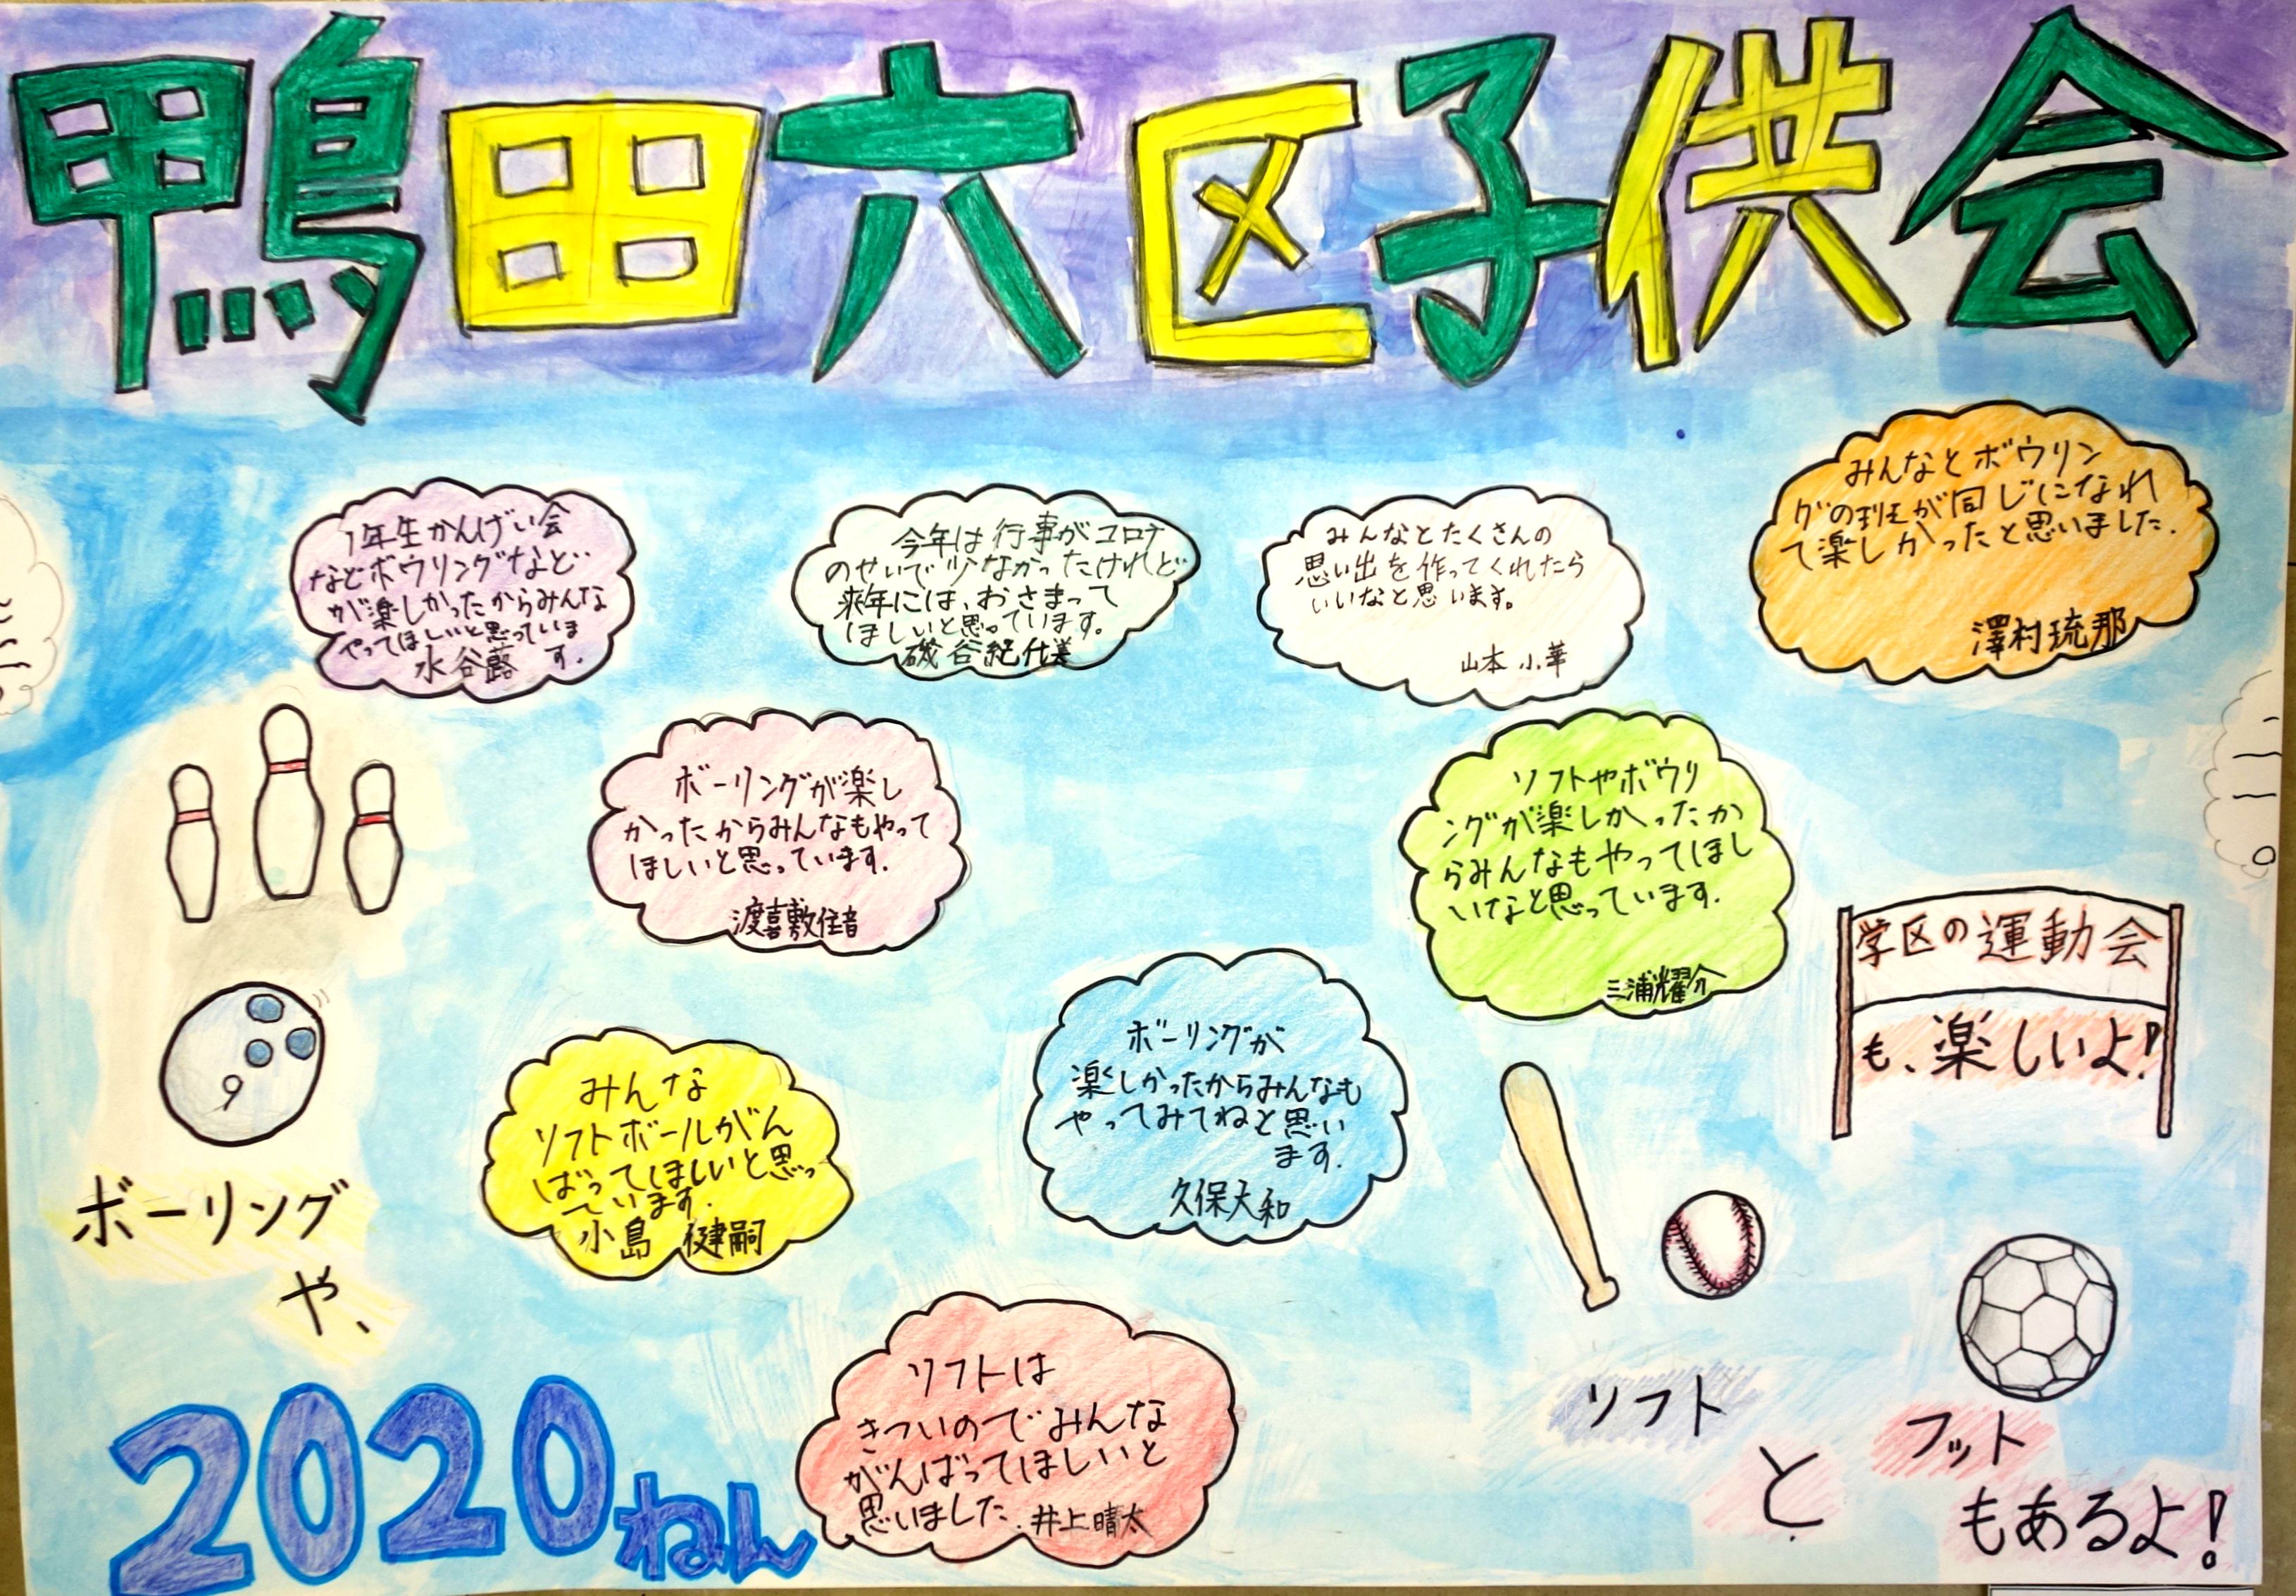 鴨田六区子供会
1年生かんげい会
などボウリングなど
が楽しかったからみんな
やってほしいと思っていま
す.
水谷蕗
今年は行事がコロナ
のせいで少なかったけれど
来年には、おさまって
ほしいと思っています。
磯谷紀代美
みんなとたくさんの
思い出を作ってくれたら
いいなと思います。
山本小華
みんなとボウリン
グの班が同じになれ
て楽しかったと思いました.
澤村琉那
ボーリングが楽し
かったからみんなもやって
ほしいと思っています.
渡喜敷住音
ソフトやボウリ
ングが楽しかったか
らみんなもやってほし
いなと思っています.
三浦耀介
学区の運動会
も、楽しいよ!
みんな
ソフトボールがん
ばってほしいと思っ
ています.
小島 健嗣
ボーリングが
楽しかったからみんなも
やってみてねと思い
ます.
久保大和
9
ボーリング
や、
2020ねん
ソフトは
きついのでみんな
がんばってほしいと
思いました.井上晴太
ソフト
と
フット
もあるよ!